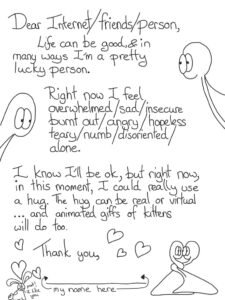 Dear Internet/friends/person,
Life can be good, & in
many ways I'm a pretty
lucky person.
Right now I feel
overwhelmed/sad/insecure
burnt out/angry/hopeless
teary/numb/disoriented/
alone.
I know I'll be ok, but right now,
in this moment, I could really use
a hug. The hug can be real or virtual
... and animated giffs of kittens
will do too.
Thank you,
my name here